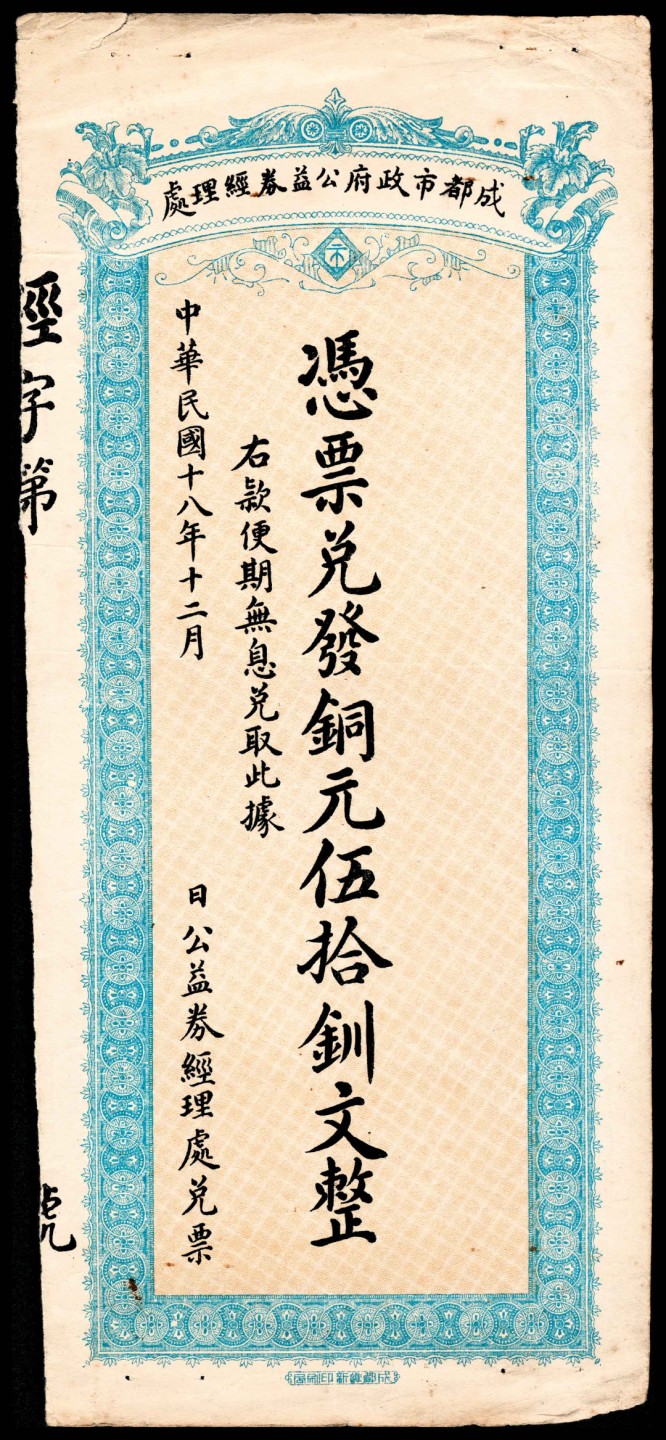 成都市政府公益券經理處
市
憑票兌發銅元伍拾釧文整
右款便期無息兌取此據
中華民國十八年十二月
日公益券經理處兌票
經字第
號